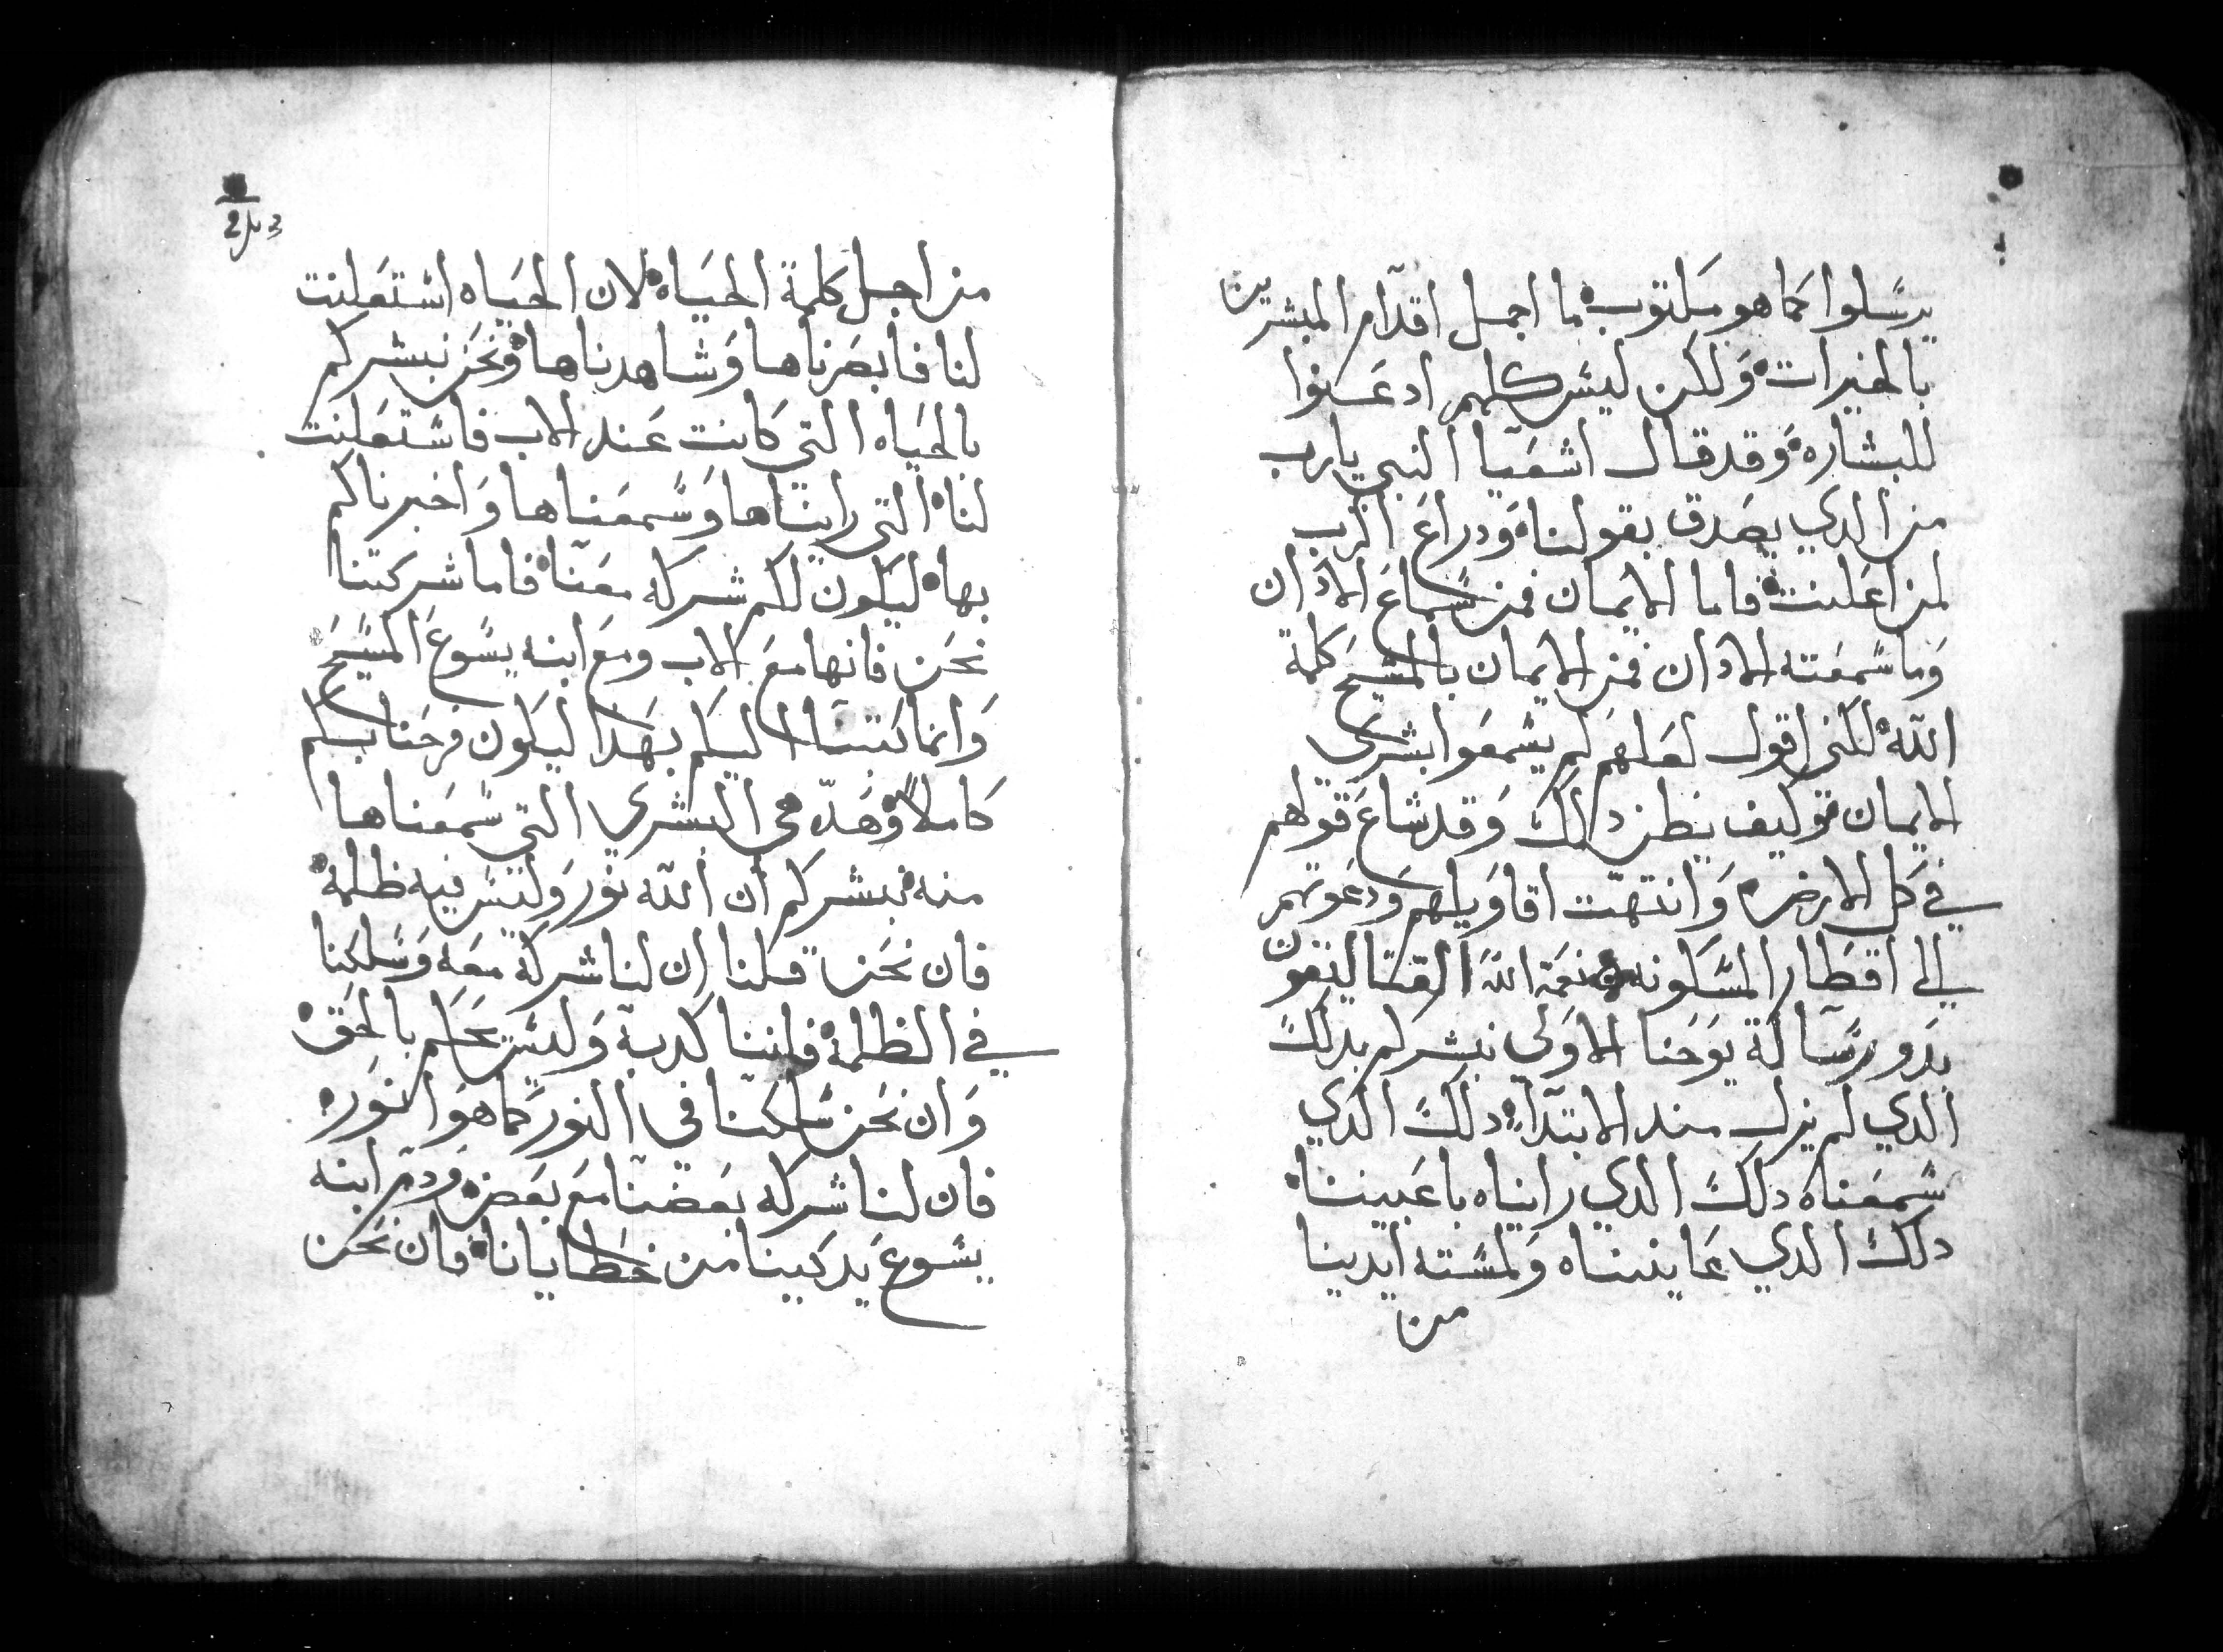 يرسلوا كما هو مكتوب ما اجمل اقدام المبشرين
بالخيرات ولكن ليس كلهم ادعنوا
للبشاره وقد قال اشعيا النبي يارب
من الدي يصدق بقولنا ودراع الرب
لمن اعلنت فاما الايمان فمن سماع الادان
وما سمعته الادان فمن الايمان بالمسيح كلمة
الله لكني اقول لعلهم لم يسمعوا بشري
الايمان وكيف يظن دالك وقد شاع قولهم
في كل الارض وانتهت اقاويلهم ودعوتهم
الي اقطار المسكونه ونعمة الله
بدو رسالة يوحنا الاولي نبشركم بدلك
الدي لم يزل مند الابتدا دلك الدي
سمعناه دلك الدي رايناه باعيننا
دلك الدي عايناه ولمسته ايدينا
من
من اجل كلمة الحياه لان الحياه استعلنت
لنا فابصرناها وشاهدناها ونحن نبشركم
بالحياه التي كانت عند الاب فاستعلنت
لنا التي رايناها وسمعناها واخبرناكم
بها ليكون لكم شركه معنا فاما شركتنا
نحن فانها مع الاب ومع ابنه يسوع المسيح
وانما كتبنا اليكم بهدا ليكون فرحنا بكم
كاملا وهده هي البشري التي سمعناها
منه نبشركم ان الله نور وليس فيه ظلمة
فان نحن قلنا ان لنا شركة معه وسلكنا
في الظلمة فاننا كدبة وليس نحكم بالحق
وان نحن سلكنا في النور كما هو النور
فان لنا شركه بعضنا مع بعض ودم ابنه
يسوع يدكينا من خطايانا فان نحن